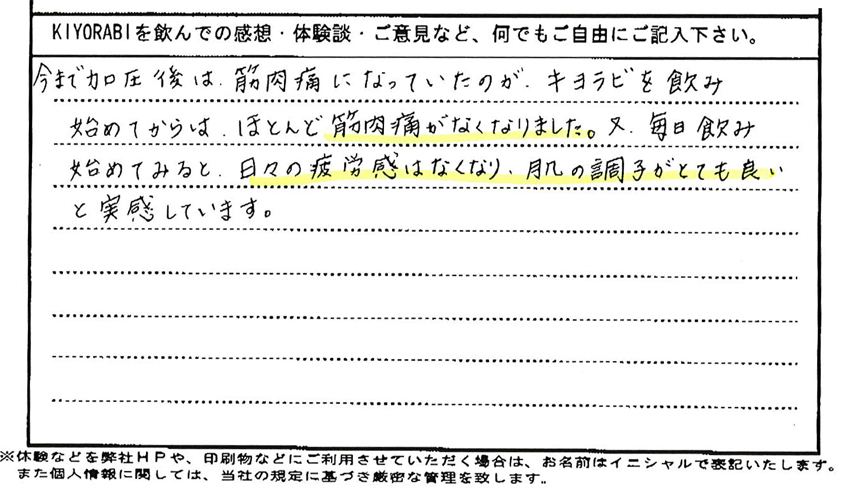 KIYORABIを飲んでの感想・体験談・ご意見など、何でもご自由にご記入下さい。
今まで加圧後は、筋肉痛になっていたのが、キヨラビを飲み
始めてからは、ほとんど筋肉痛がなくなりました。又、毎日飲み
始めてみると、日々の疲労感はなくなり、肌の調子がとても良い
と実感しています。
※体験などを弊社HPや、印刷物などにご利用させていただく場合は、お名前はイニシャルで表記いたします。
また個人情報に関しては、当社の規定に基づき厳密な管理を致します。